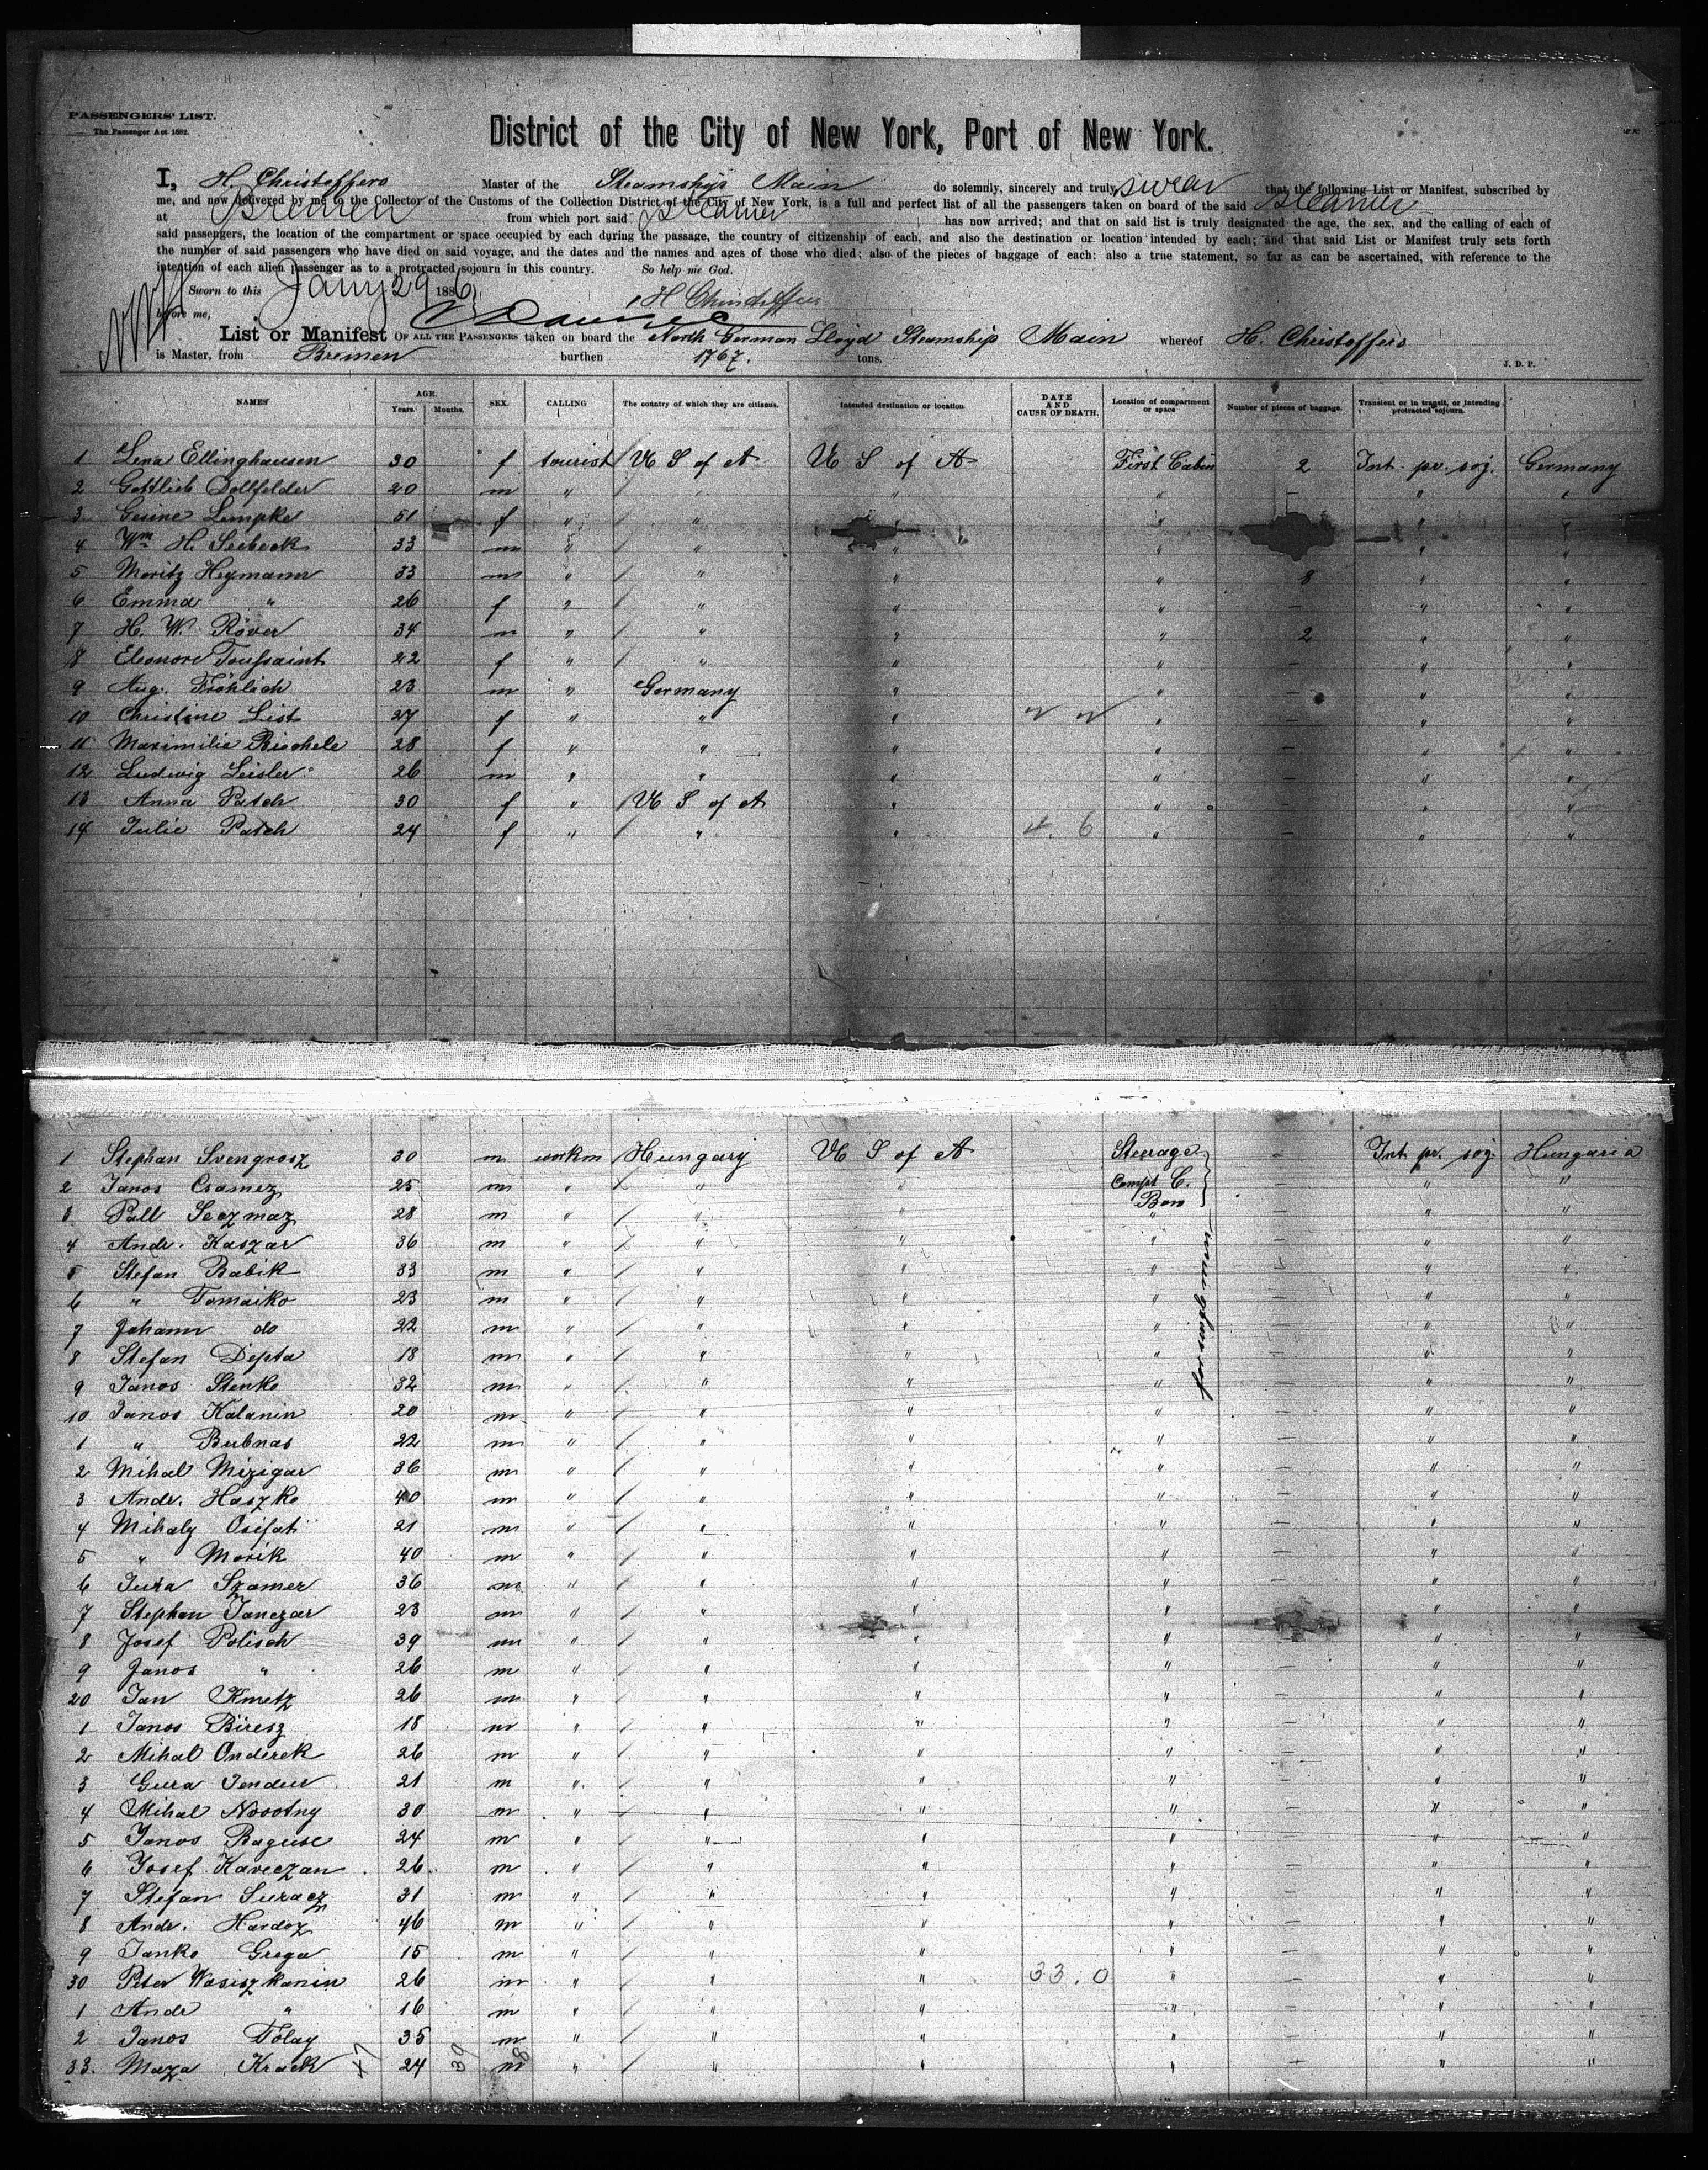 PASSENGERS' LIST.
The Passenger Act 1882.
District of the City of New York, Port of New York.
I, H. Christoffers Master of the Steamship Main do solemnly, sincerely and truly swear that the following List or Manifest, subscribed by
me, and now delivered by me to the Collector of the Customs of the Collection District of the City of New York, is a full and perfect list of all the passengers taken on board of the said Steamer
at Bremen from which port said Steamer has now arrived; and that on said list is truly designated the age, the sex, and the calling of each of
said passengers, the location of the compartment or space occupied by each during the passage, the country of citizenship of each, and also the destination or location intended by each; and that said List or Manifest truly sets forth
the number of said passengers who have died on said voyage, and the dates and the names and ages of those who died; also of the pieces of baggage of each; also a true statement, so far as can be ascertained, with reference to the
intention of each alien passenger as to a protracted sojourn in this country. So help me God.
Sworn to this Jany 29 1886
before me, H Christoffers
List or Manifest OF ALL THE PASSENGERS taken on board the North German Lloyd Steamship Main whereof H. Christoffers
is Master, from Bremen burthen 1767. tons.
J. D. P.
NAMES AGE. Years. Months. SEX. CALLING The country of which they are citizens. Intended destination or location. DATE AND CAUSE OF DEATH. Location of compartment or space Number of pieces of baggage. Transient or in transit, or intending protracted sojourn.
1 Lena Ellinghausen 30 f tourist U S of A U S of A First Cabin 2 Int. pr. soj. Germany
2 Gottlieb Dollfelder 20 m " " " " - " "
3 Gesine Lempke 51 f " " " " " "
4 Wm H. Seebeck 33 m " " " " " "
5 Moritz Heymann 33 m " " " " 8 " "
6 Emma " 26 f " " " " - " "
7 H. W. Röver 34 m " " " " 2 " "
8 Eleonore Toussaint 22 f " " " " - " "
9 Aug. Fröhlich 23 m " Germany " " - " "
10 Christine List 27 f " " " " - " "
11 Maximilie Biechele 28 f " " " " - " "
12 Ludwig Leisler 26 m " " " " - " "
13 Anna Patch 30 f " U S of A " " - " "
14 Julie Patch 24 f " " " " - " "
1 Stephan Svengrosz 30 m workm Hungary U S of A Steerage - Int pr. soj. Hungaria
2 Janos Csamez 25 m " " " Compt C. - " "
Bow
3 Pall Seczmaz 28 m " " " " - " "
4 Andr. Kaszar 36 m " " " " - " "
5 Stefan Babik 33 m " " " " - " "
6 " Tomaiko 23 m " " " " - " "
7 Johann do 22 m " " " " - " "
for single men
8 Stefan Depta 18 m " " " " - " "
9 Janos Stenko 32 m " " " " - " "
10 Janos Kalanin 20 m " " " " - " "
1 " Bubnas 22 m " " " " - " "
2 Mihal Mizigar 36 m " " " " - " "
3 Andr. Haszko 40 m " " " " - " "
4 Mihaly Osifat 21 m " " " " - " "
5 " Morik 40 m " " " " - " "
6 Jura Szamer 36 m " " " " - " "
7 Stephan Janczar 23 m " " " " - " "
8 Josef Polisch 39 m " " " " - " "
9 Janos " 26 m " " " " - " "
20 Jan Kmetz 26 m " " " " - " "
1 Janos Biresz 18 m " " " " - " "
2 Mihal Onderek 26 m " " " " - " "
3 Gura Jendur 21 m " " " " - " "
4 Mihal Novotny 30 m " " " " - " "
5 Janos Baguse 24 m " " " " - " "
6 Josef Kaveczan 26 m " " " " - " "
7 Stefan Suracz 31 m " " " " - " "
8 Andr. Hardoz 46 m " " " " - " "
9 Janko Grega 15 m " " " " - " "
30 Peter Wasiszkanin 26 m " " " 33.0 " - " "
1 Andr " 16 m " " " " - " "
2 Janos Tolay 35 m " " " " - " "
33. Maza Krack 24 m " " " " - " "